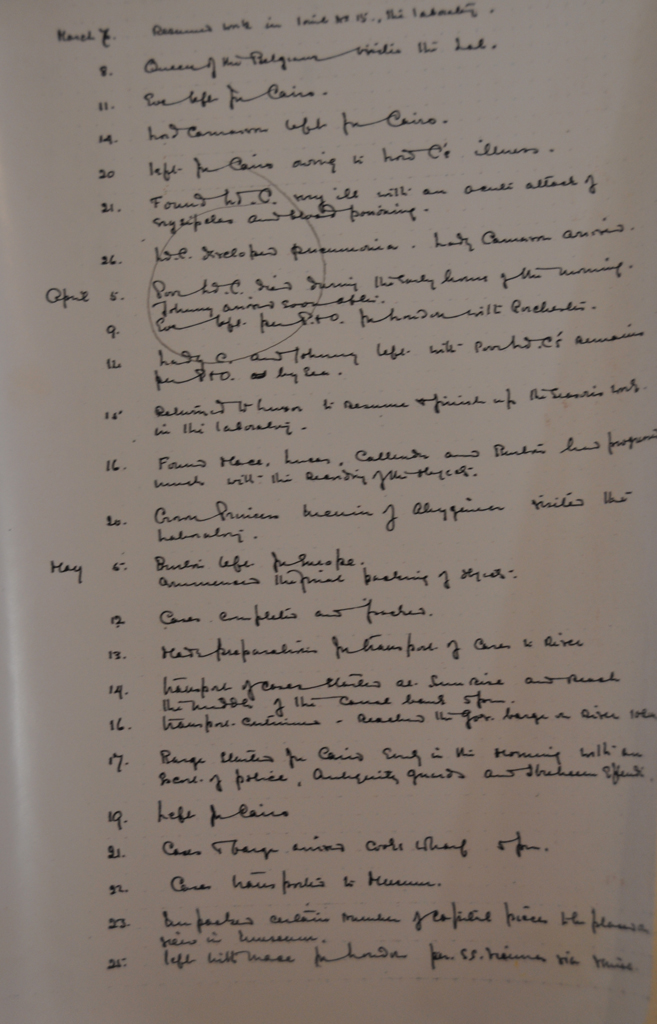 March 7. Resumed work in Tomb No 15., the laboratory.
8. Queen of the Belgians visited the Lab.
11. Eve left for Cairo.
14. Lord Carnarvon left for Cairo.
20 left for Cairo owing to Lord C's illness.
21. Found Ld. C. very ill with an acute attack of
erysipelas and blood poisoning.
26. Ld. C. developed pneumonia. Lady Carnarvon arrived.
April 5. Poor Ld. C. died during the early hours of the morning.
Johnny arrived soon after.
9. Eve left per P&O. for London with Porchester.
14 Lady C. and Johnny left with Poor Ld. C's remains
per P&O. by Sea.
15 Returned to Luxor to resume & finish up the season's work
in the laboratory.
16. Found Mace, Lucas, Callender and Burton had progressed
much with the recording of the objects.
20. Crown Princess of visited the
Laboratory.
May 5. Burton left for Europe.
Commenced the final packing of objects.
12 Cases completed and packed.
13. Made preparations for transport of Cases to River
14. transport of cases started at Sunrise and reach
the middle of the Canal bank 5 pm.
16. transport continued - reached the Gov. barge on River
17. Barge started for Cairo Early in the Morning with an
Escort of police, Antiquity guards and Ibrahim Effendi
19. Left for Cairo
21. Cases & barge arrived Cooks Wharf 5 pm.
22. Cases transported to Museum.
23. Unpacked certain number of capital pieces to be placed on
view in Museum.
25. left with Mace for London per. S.S. Vienna via Venice